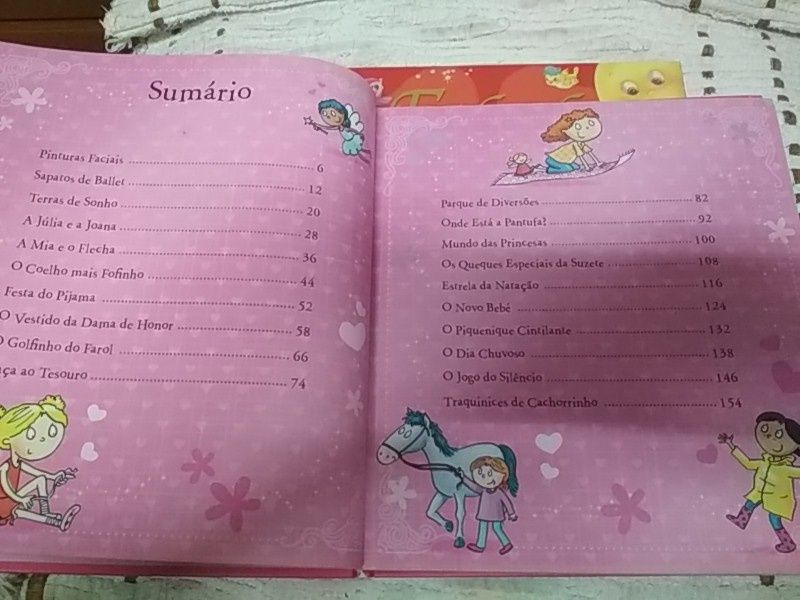 Sumário
Pinturas Faciais 6
Sapatos de Ballet 12
Terras de Sonho 20
A Júlia e a Joana 28
A Mia e o Flecha 36
O Coelho mais Fofinho 44
Festa do Pijama 52
O Vestido da Dama de Honor 58
O Golfinho do Farol 66
ao Tesouro 74
Parque de Diversões 82
Onde Está a Pantufa? 92
Mundo das Princesas 100
Os Queques Especiais da Suzete 108
Estrela da Natação 116
O Novo Bebé 124
O Piquenique Cintilante 132
O Dia Chuvoso 138
O Jogo do Silêncio 146
Traquinices de Cachorrinho 154